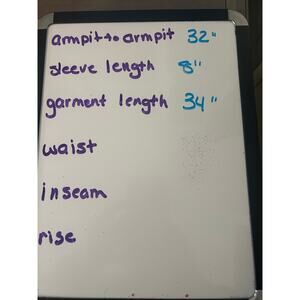 armpit to armpit 32"
sleeve length 8"
garment length 34"
waist
inseam
rise